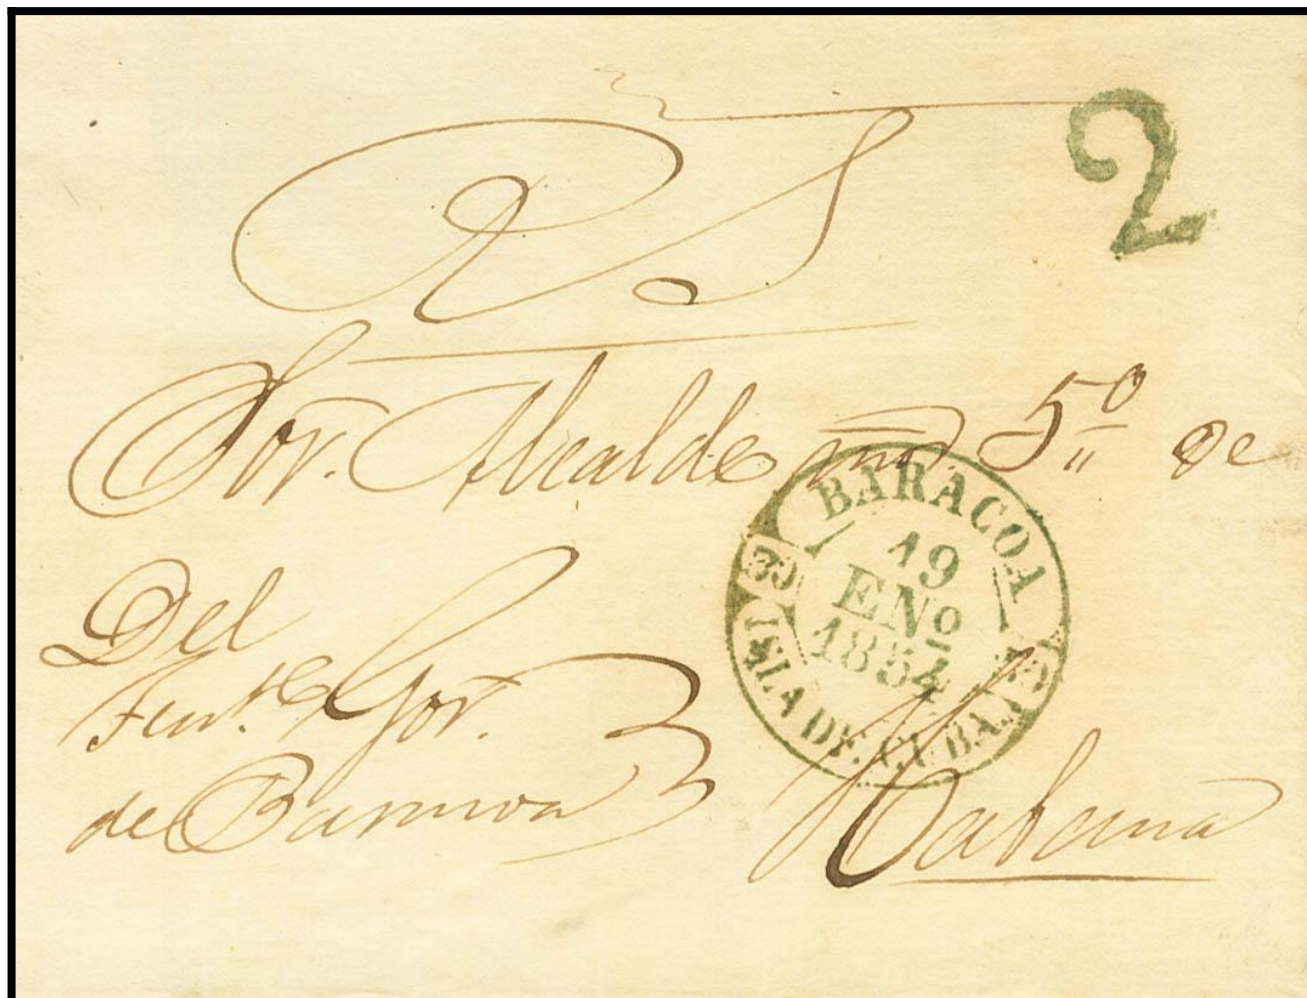 RS
2
Sor. Alcalde mor. 5º de
BARACOA
19
ENº
1854
ISLA DE CUBA
Del
Tente. Gor.
de Baracoa
Habana